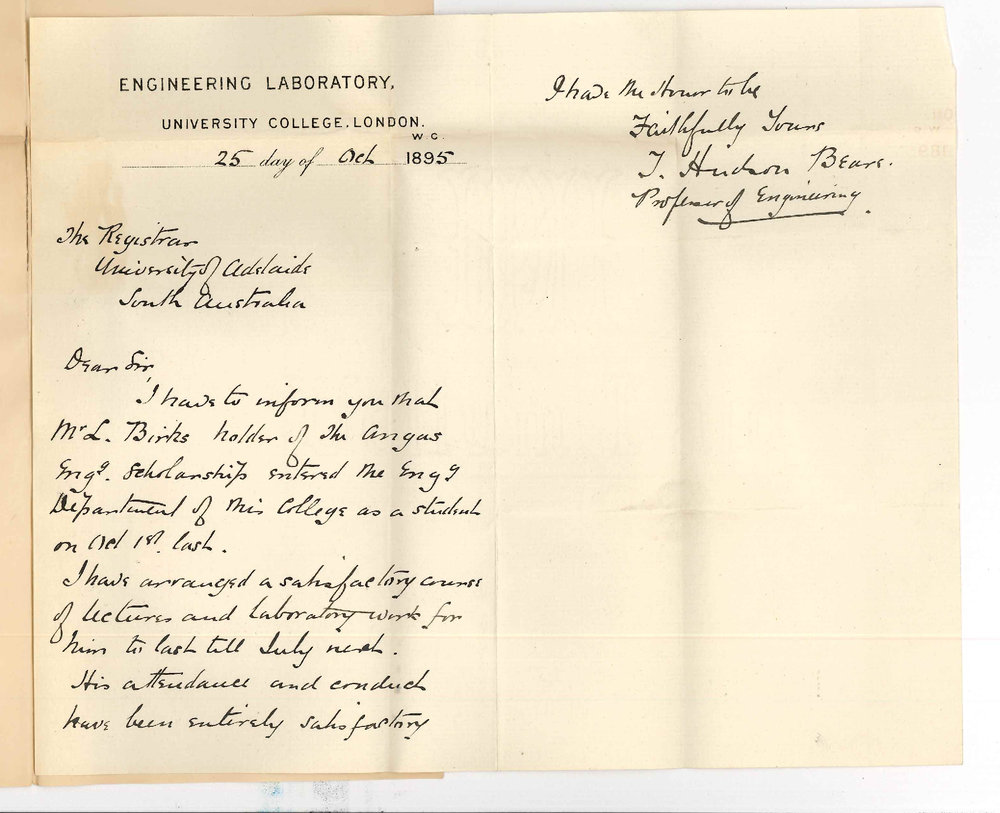 ENGINEERING LABORATORY,
UNIVERSITY COLLEGE, LONDON.
W.C.
25 day of Oct 1895
The Registrar
University of Adelaide
South Australia
Dear Sir,
I have to inform you that
Mr L. Birks holder of the Angas
Engg. Scholarship entered the Engg
Department of this College as a student
on Oct 1st. last.
I have arranged a satisfactory course
of lectures and laboratory work for
him to last till July next.
His attendance and conduct
have been entirely satisfactory
I have the Honor to be
Faithfully Yours
T. Hudson Beare.
Professor of Engineering.